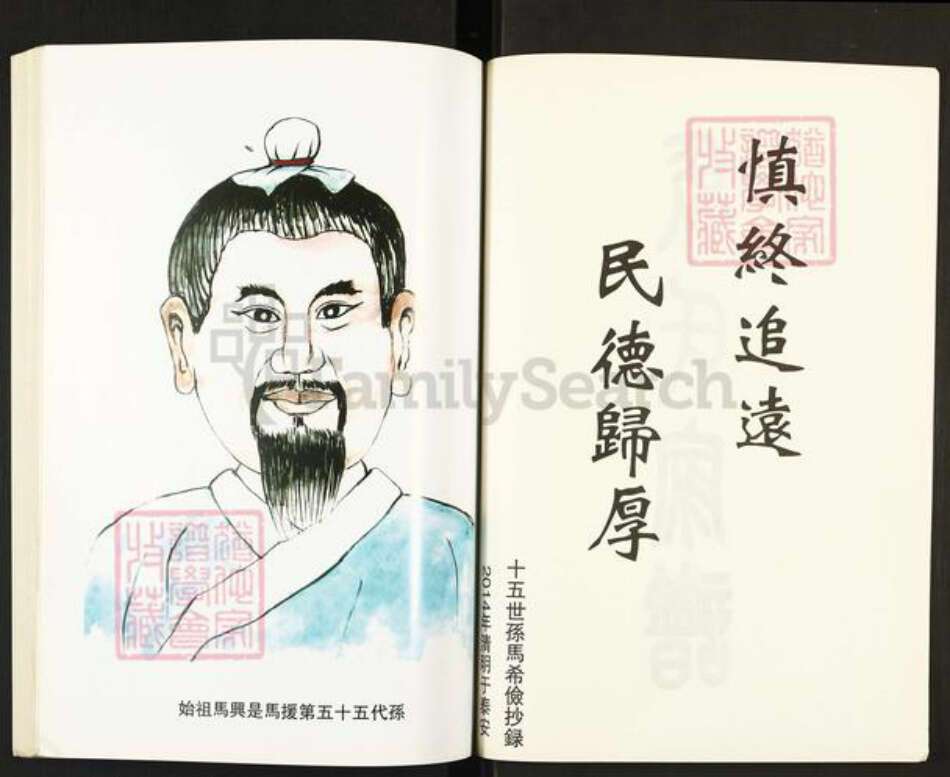 慎終追遠
民德歸厚
十五世孫馬希儉抄録
2014年清明于泰安
始祖馬興是馬援第五十五代孫
FamilySearch
收藏
譜學會